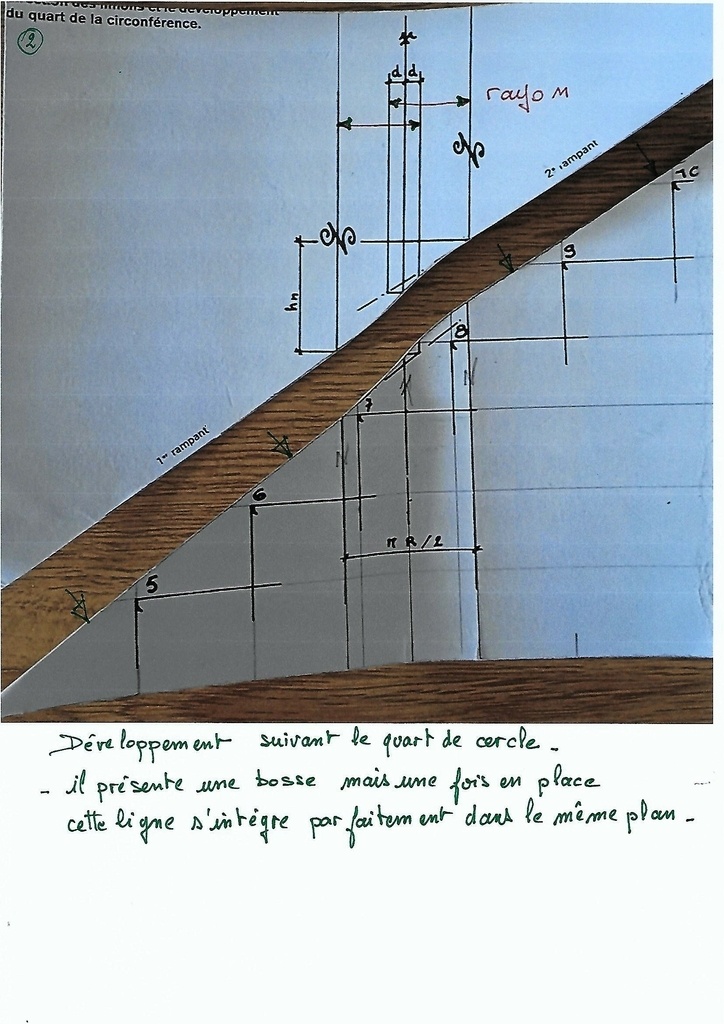 des limons et le développement
du quart de la circonférence.
2
d d
rayon
2e rampant
10
9
hn
8
1er rampant
7
N
N
6
π R / 2
5
Développement suivant le quart de cercle -
- il présente une bosse mais une fois en place
cette ligne s'intègre parfaitement dans le même plan -